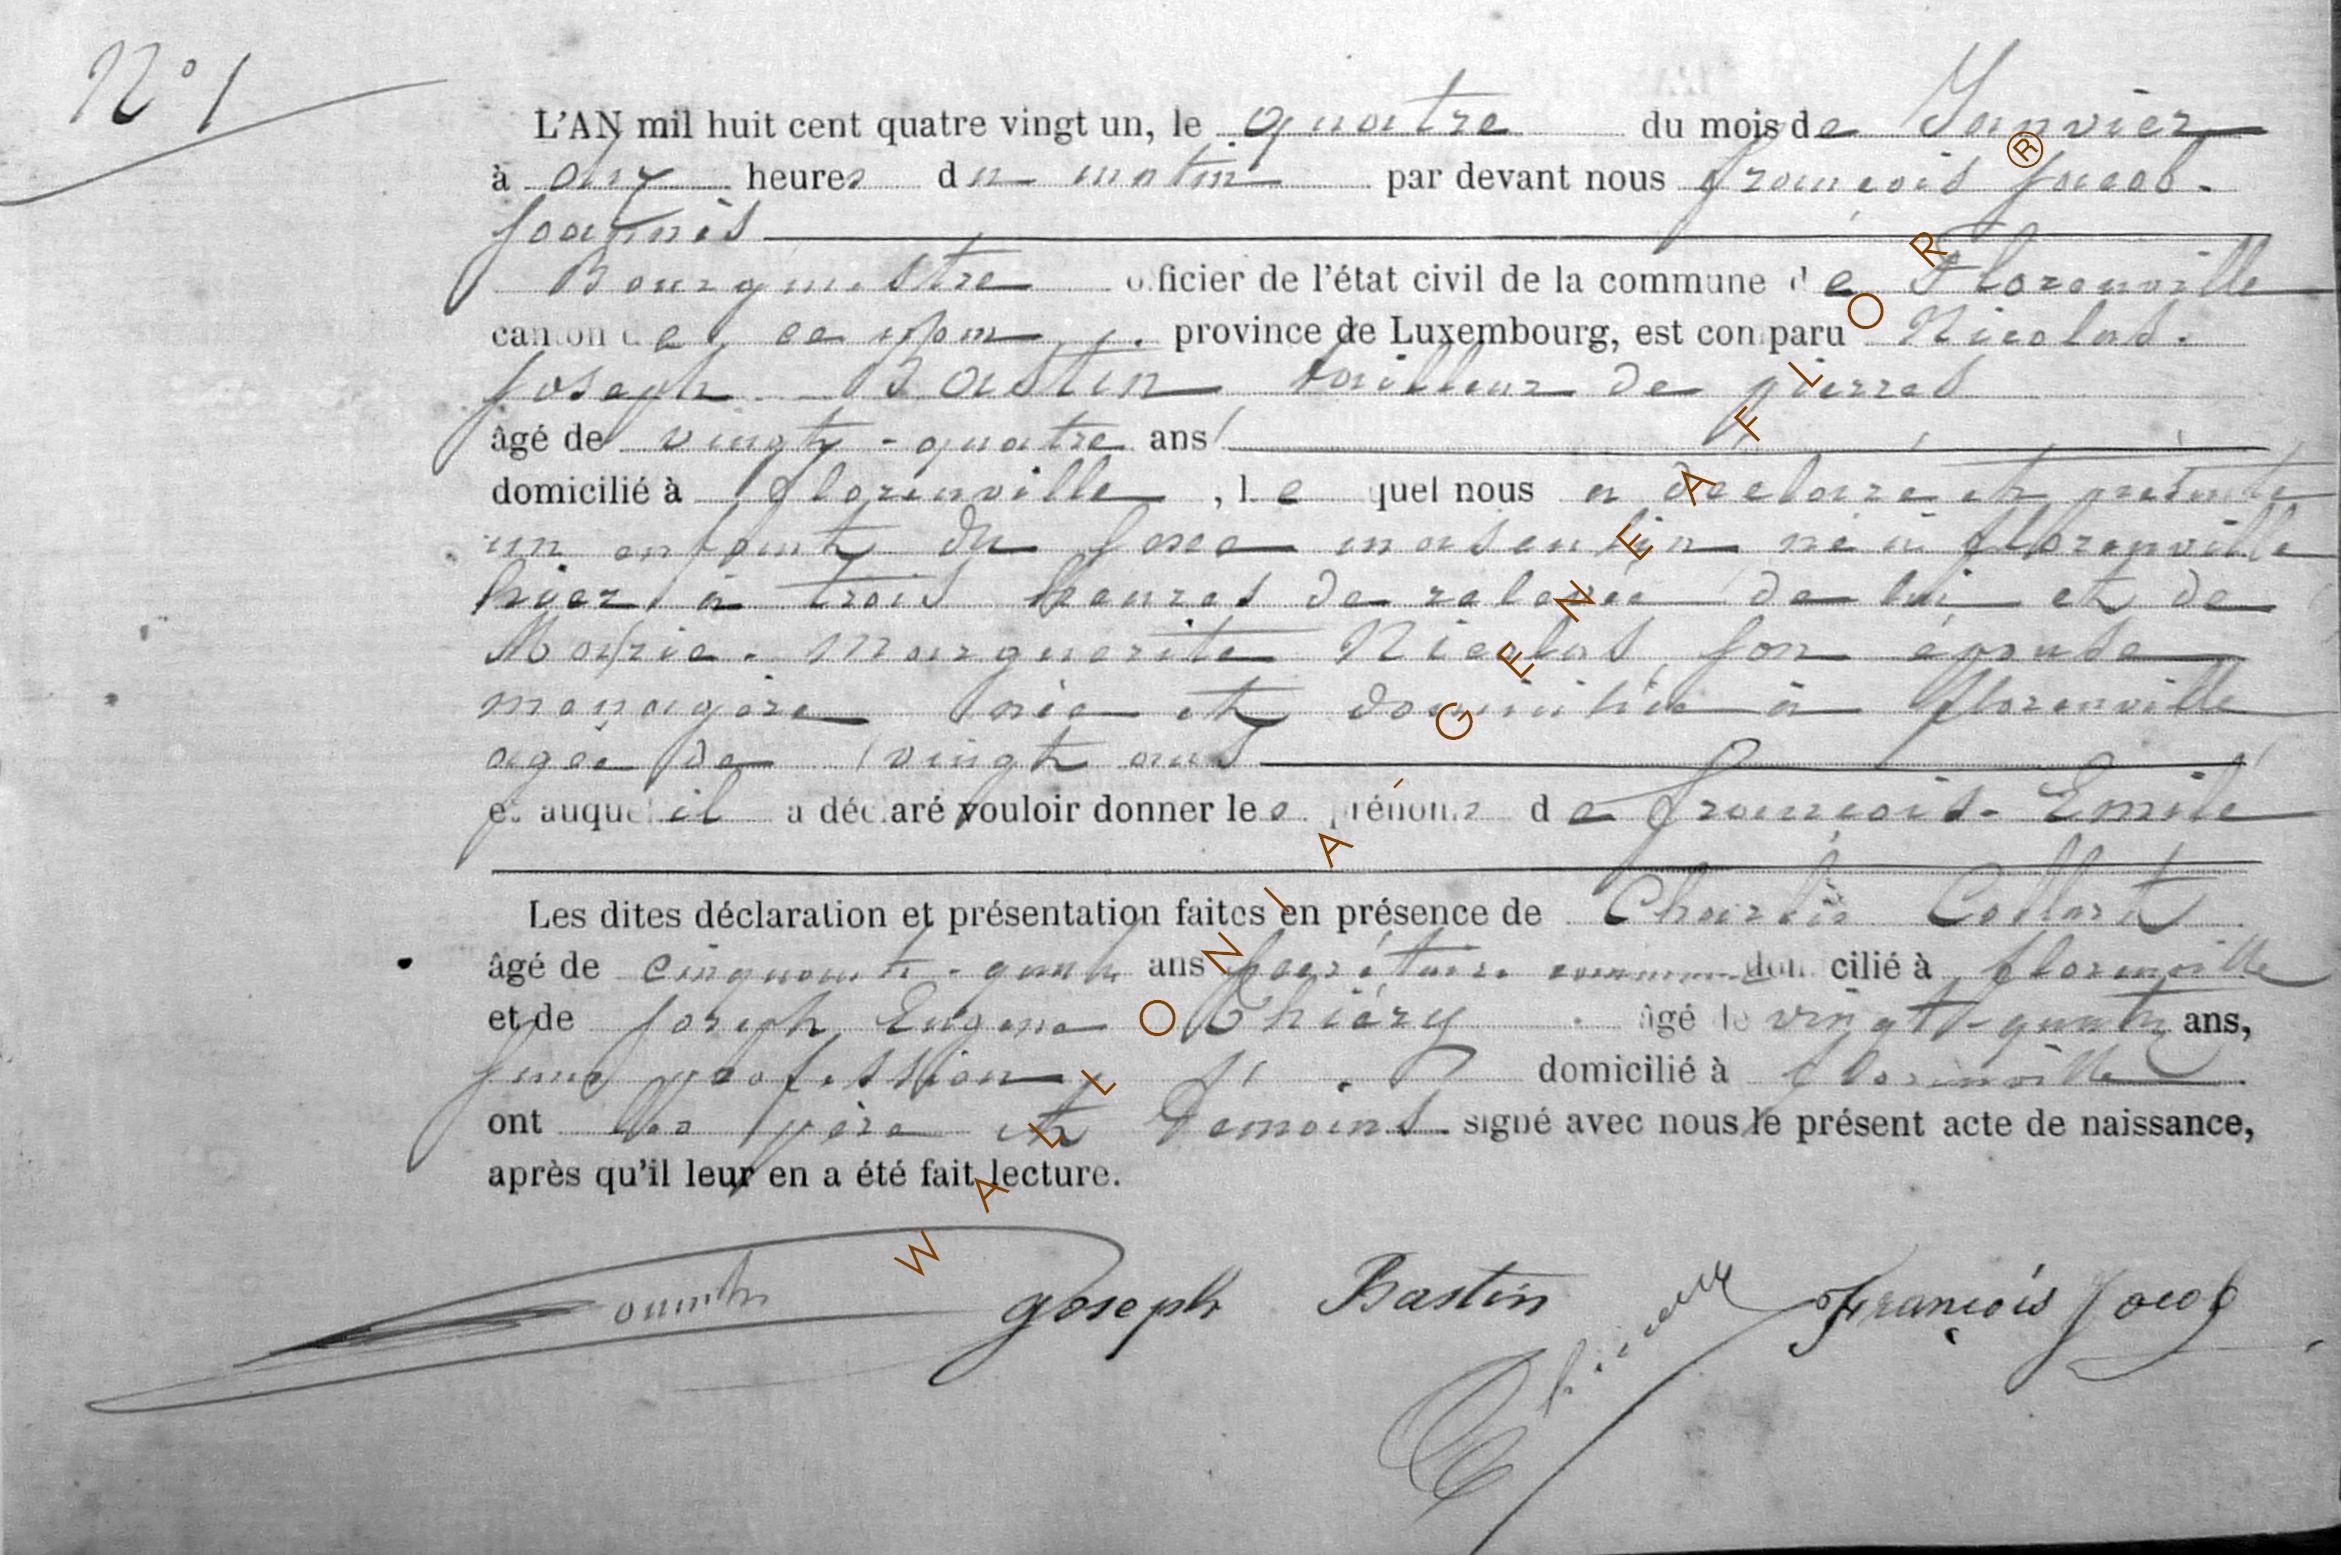 N° 1
L'AN mil huit cent quatre vingt un, le quatre du mois de Janvier
à onze heures du matin par devant nous François Jacob.
Joannès
Bourgmestre officier de l'état civil de la commune de Florenville
canton de ce nom, province de Luxembourg, est comparu Nicolas.
Joseph Bastin tailleur de pierres
âgé de vingt-quatre ans
domicilié à Florenville, lequel nous a déclaré et présenté
un enfant du sexe masculin né à Florenville
hier à trois heures de relevée de lui et de
Marie-Marguerite Nicolas son épouse
ménagère née et domiciliée à Florenville
agée de vingt ans
et auquel il a déclaré vouloir donner les prénoms de François-Emile
Les dites déclaration et présentation faites en présence de Charles Collart
âgé de cinquante-quatre ans Secrétaire communal domicilié à Florenville
et de Joseph Eugène Thiéry âgé de vingt-quatre ans,
sans profession domicilié à Florenville
ont les père et témoins signé avec nous le présent acte de naissance,
après qu'il leur en a été fait lecture.
Joseph Bastin François Jacob
WALLONIA-GENEAFLOR®